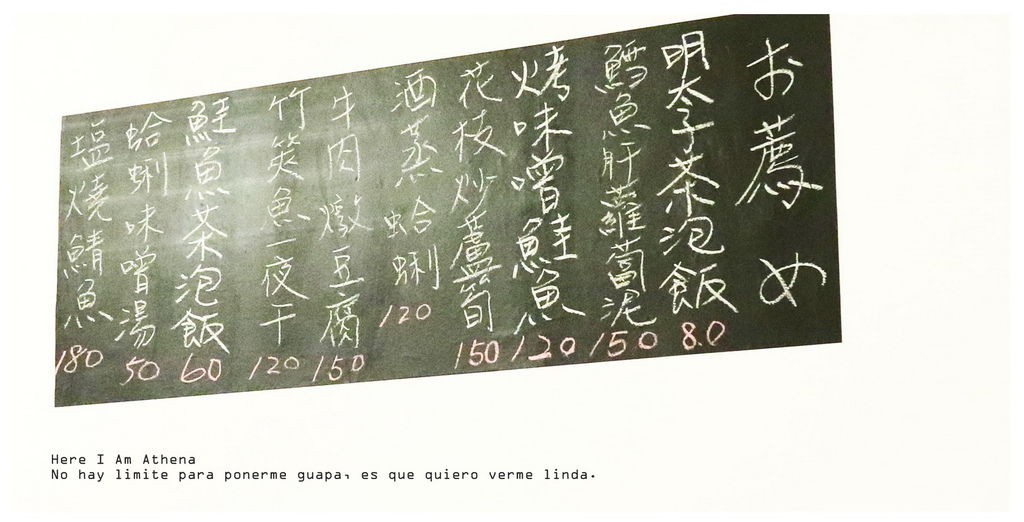 お薦め
明太子茶泡飯 80
鱈魚肝蘿蔔泥 150
烤味噌鮭魚 120
花枝炒蘆筍 150
酒蒸蛤蜊 120
牛肉燉豆腐 150
竹筴魚一夜干 120
鮭魚茶泡飯 60
蛤蜊味噌湯 50
塩燒鯖魚 180
Here I Am Athena
No hay limite para ponerme guapa, es que quiero verme linda.